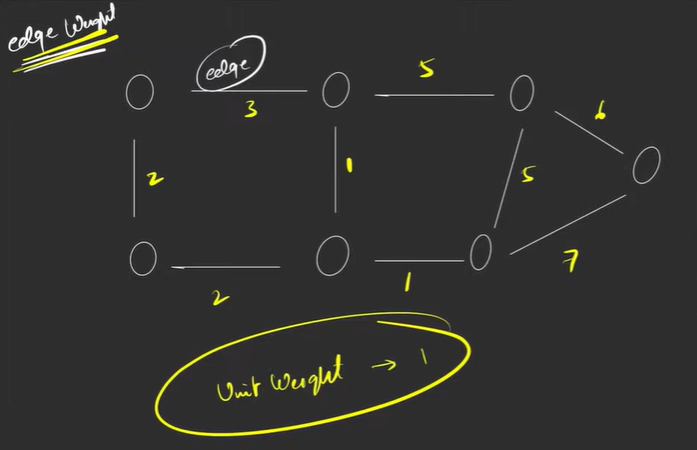 edge Weight
edge
3
5
6
2
1
5
2
1
7
Unit Weight → 1